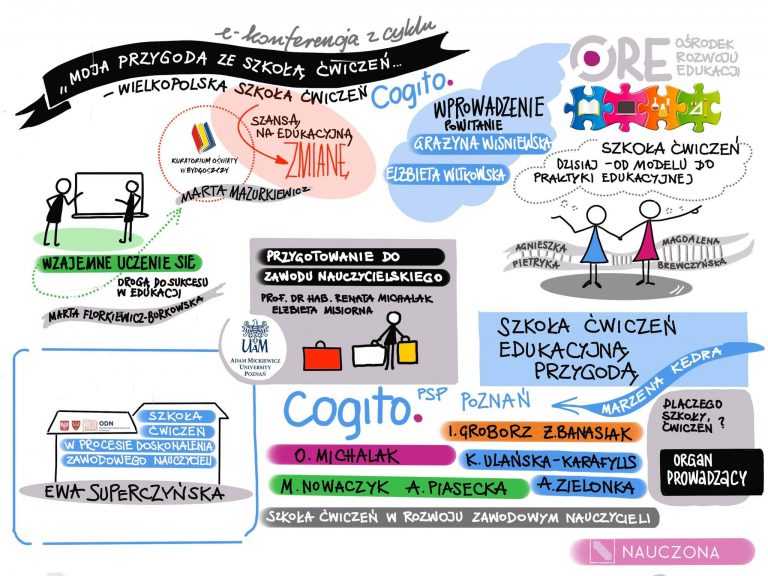 e-konferencja z cyklu
„MOJA PRZYGODA ZE SZKOŁĄ ĆWICZEŃ...
– WIELKOPOLSKA SZKOŁA ĆWICZEŃ Cogito.
ORE OŚRODEK
ROZWOJU
EDUKACJI
WPROWADZENIE
POWITANIE
GRAŻYNA WIŚNIEWSKA
ELŻBIETA WITKOWSKA
KURATORIUM OŚWIATY
W BYDGOSZCZY
SZANSĄ
NA EDUKACYJNĄ
ZMIANĘ
MARTA MAZURKIEWICZ
SZKOŁA ĆWICZEŃ
DZISIAJ – OD MODELU DO
PRAKTYKI EDUKACYJNEJ
AGNIESZKA
PIETRYKA
MAGDALENA
BREWCZYŃSKA
WZAJEMNE UCZENIE SIĘ
DROGĄ DO SUKCESU
W EDUKACJI
MARTA FLORKIEWICZ-BORKOWSKA
PRZYGOTOWANIE DO
ZAWODU NAUCZYCIELSKIEGO
PROF. DR HAB. RENATA MICHALAK
ELŻBIETA MISIORNA
UAM
ADAM MICKIEWICZ
UNIVERSITY
POZNAŃ
SZKOŁA ĆWICZEŃ
EDUKACYJNĄ
PRZYGODĄ
MARZENA KĘDRA
Cogito. PSP POZNAŃ
I. GROBORZ Z. BANASIAK
O. MICHALAK
K. ULAŃSKA-KARAFYLIS
M. NOWACZYK A. PIASECKA
A. ZIELONKA
SZKOŁA ĆWICZEŃ W ROZWOJU ZAWODOWYM NAUCZYCIELI
DLACZEGO
SZKOŁY
ĆWICZEŃ ?
ORGAN
PROWADZĄCY
ODN
SZKOŁA
ĆWICZEŃ
W PROCESIE DOSKONALENIA
ZAWODOWEGO NAUCZYCIELI
EWA SUPERCZYŃSKA
NAUCZONA